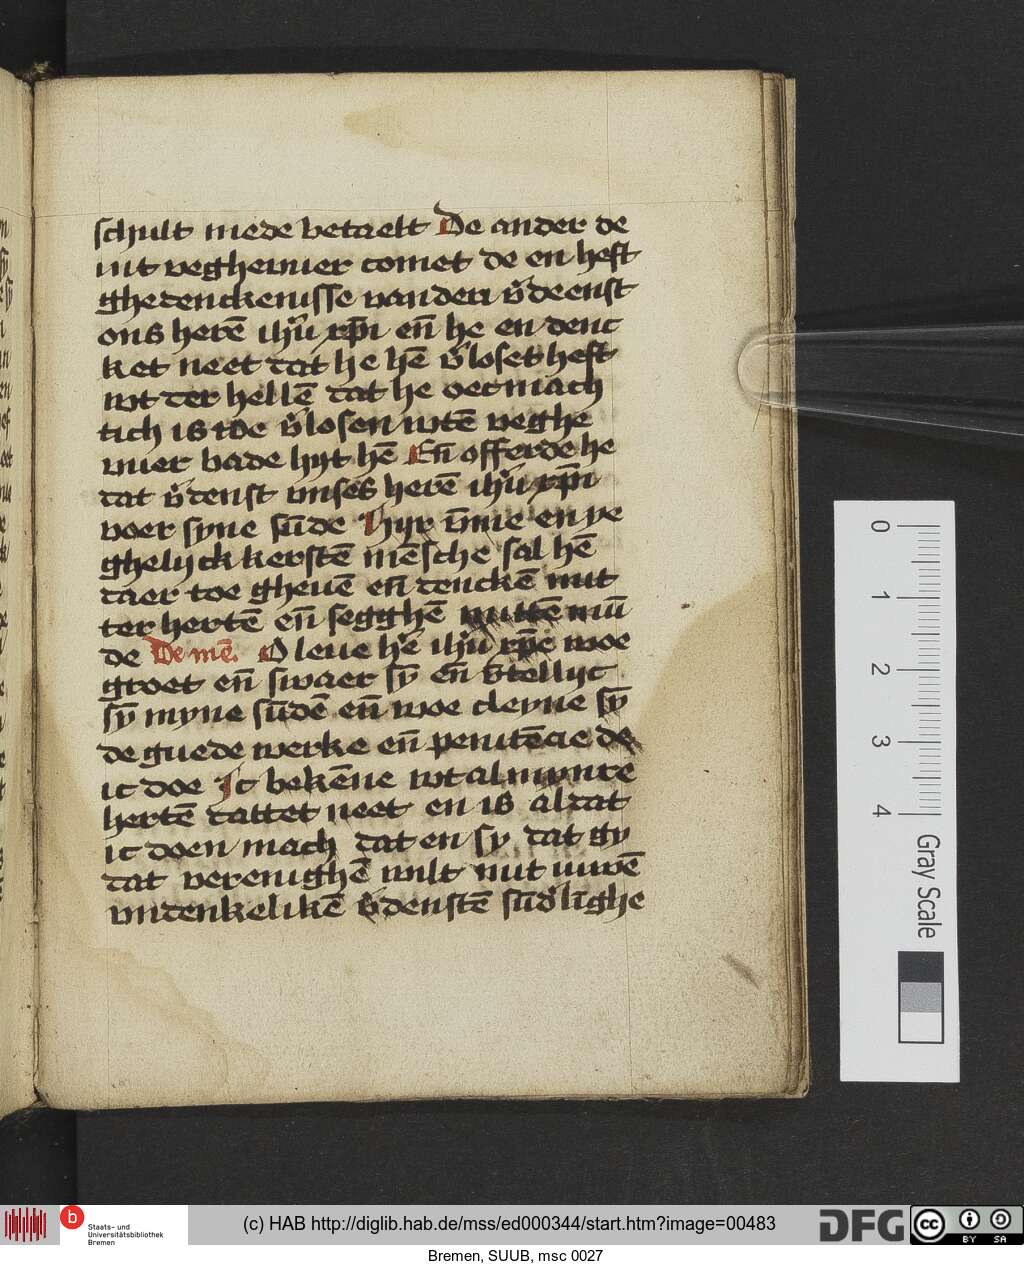 schult mede betaelt De ander de
int veghevuer comet de en heft
ghedenckenisse van den v̄deenst
ons herē ihū xp̄i en̄ he en denc
ket neet dat he hē v̄loset heft
wt der hellē dat he oec mach
tich is toe v̄losen wtē veghe
vuer bade hijt hē En̄ offerde he
dat v̄denst vnses herē ihū xp̄i
voer syne sūde Hijr v̄me en ye
ghelijck kerstē mēsche sal hē
daer toe ghevē en̄ denckē mit
ter hertē en̄ segghē mittē mū
de De mē. O leue h'e ihū xp̄e woe
groet en̄ swaer sȳ en̄ v̄tellijc
sȳ myne sūdē en̄ woe cleyne sȳ
de guede werke en̄ penitēcie de
ic doe Ic bekēne wt al mynre
hertē dattet neet en is al dat
ic doen mach dat en sy dat gy
dat verenighē wilt mit uwē
vndenkelikē v̄denstē sūd'līghe
0
1
2
3
4
Gray Scale
b
Staats- und
Universitätsbibliothek
Bremen
(c) HAB http://diglib.hab.de/mss/ed000344/start.htm?image=00483
DFG
cc
BY SA
Bremen, SUUB, msc 0027